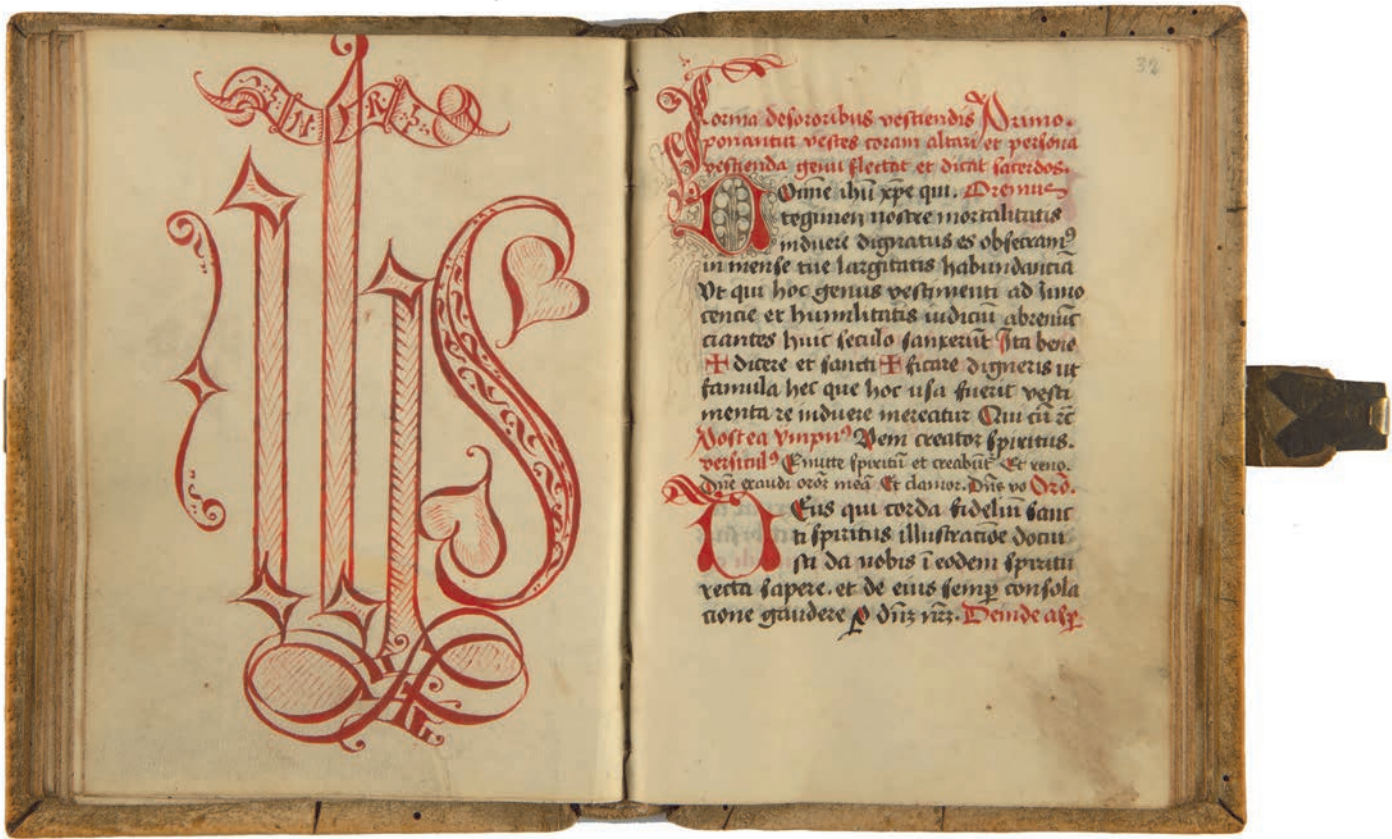 I N R I
ihs
32
Forma desororibus vestiendis Primo.
ponantur vestes coram altari et persona
vestienda genu flectat et dicat sacerdos.
Domine ihũ xp̃e qui. Oremus
tegimen nostre mortalitatis
induere dignatus es obsecram⁹
in mense tue largitatis habundanciã
Vt qui hoc genus vestimenti ad Inno
cencie et humilitatis iudiciũ abrenũc
ciantes huic seculo sanxerũt Ita bene
✠ dicere et sancti ✠ ficare digneris ut
famula hec que hoc usa fuerit vesti
menta re induere mereatur Qui cũ rc̃
Postea Ympn⁹ Veni creator spiritus.
versicul⁹ Emitte spiritũ et creabũt Et reno.
Dñe exaudi orõz meã Et clamor. Dñs vo Orõ.
Deus qui corda fidelũ sanc
ti spiritus illustraciõe docui
sti da nobis ĩ eodem spiritu
recta sapere. et de eius semꝑ consola
cione gaudere ꝑ dñz nr̃z. Deinde asꝑ.